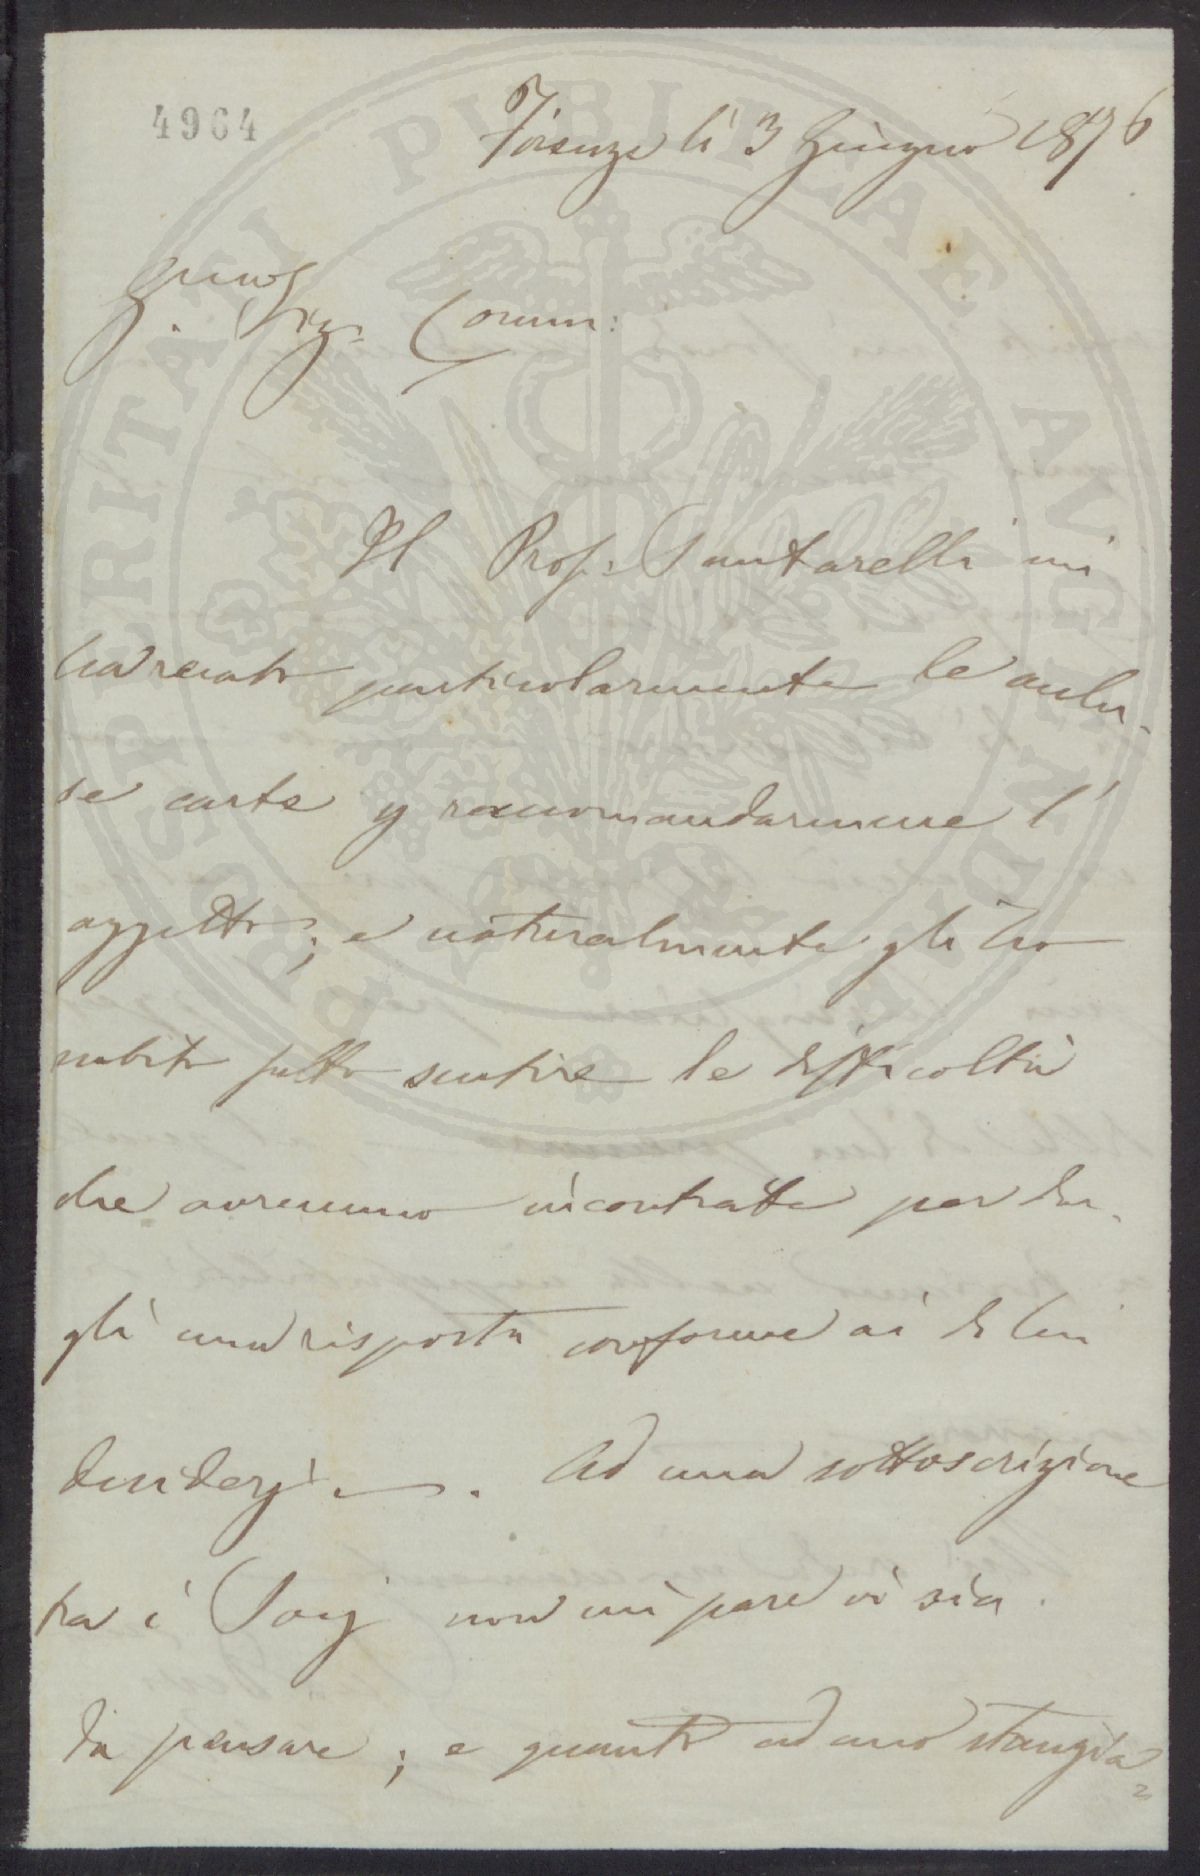 4964
Firenze li 3 Giugno 1876
Sig. Comm:
Il Prof. Santarelli mi
ha recato particolarmente le anlu-
se carte p raccomandarmene l'
oggetto; e naturalmente gli ho
subito fatto sentire le difficoltà
che avremmo incontrate per dar-
gli una risposta conforme ai di lui
desiderj. Ad una sottoscrizione
tra i Socj non mi pare vi sia
da pensare; e quanto ad uno stanzia=
PROSPERITATI PVBLICAE AVGENDAE